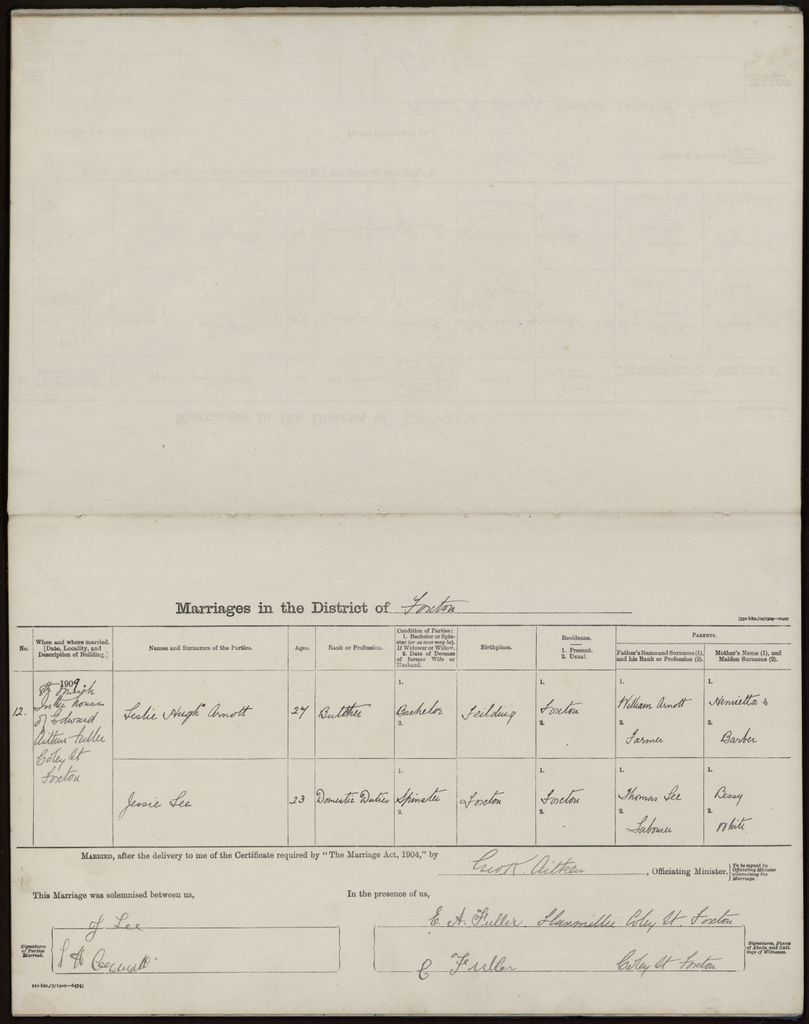 Marriages in the District of Foxton
No.
When and where married. [Date, Locality, and Description of Building.]
Names and Surnames of the Parties.
Ages.
Rank or Profession.
Condition of Parties: 1. Bachelor or Spinster (or as case may be). If Widower or Widow, 2. Date of Decease of former Wife or Husband.
Birthplace.
Residence. 1. Present. 2. Usual.
PARENTS.
Father's Name and Surname (1), and his Rank or Profession (2).
Mother's Name (1), and Maiden Surname (2).
12.
1909
In the house
of Edward
Arthur Fuller
Coley St
Foxton
Leslie Hugh Arnott
27
Butcher
1.
Bachelor
2.
Feilding
1.
Foxton
2.
1.
William Arnott
2.
Farmer
1.
Henrietta
2.
Barber
Jessie Lee
23
Domestic Duties
1.
Spinster
2.
Foxton
1.
Foxton
2.
1.
Thomas Lee
2.
Labourer
1.
Bessy
2.
White
MARRIED, after the delivery to me of the Certificate required by "The Marriage Act, 1904," by Geo K. Aitken, Officiating Minister.
[To be signed by Officiating Minister solemnising the Marriage.
This Marriage was solemnised between us,
In the presence of us,
Signatures of Parties Married.
J Lee
L H
E. A. Fuller. Flaxmiller Coley St. Foxton
C Fuller Coley St Foxton
Signatures, Places of Abode, and Callings of Witnesses.